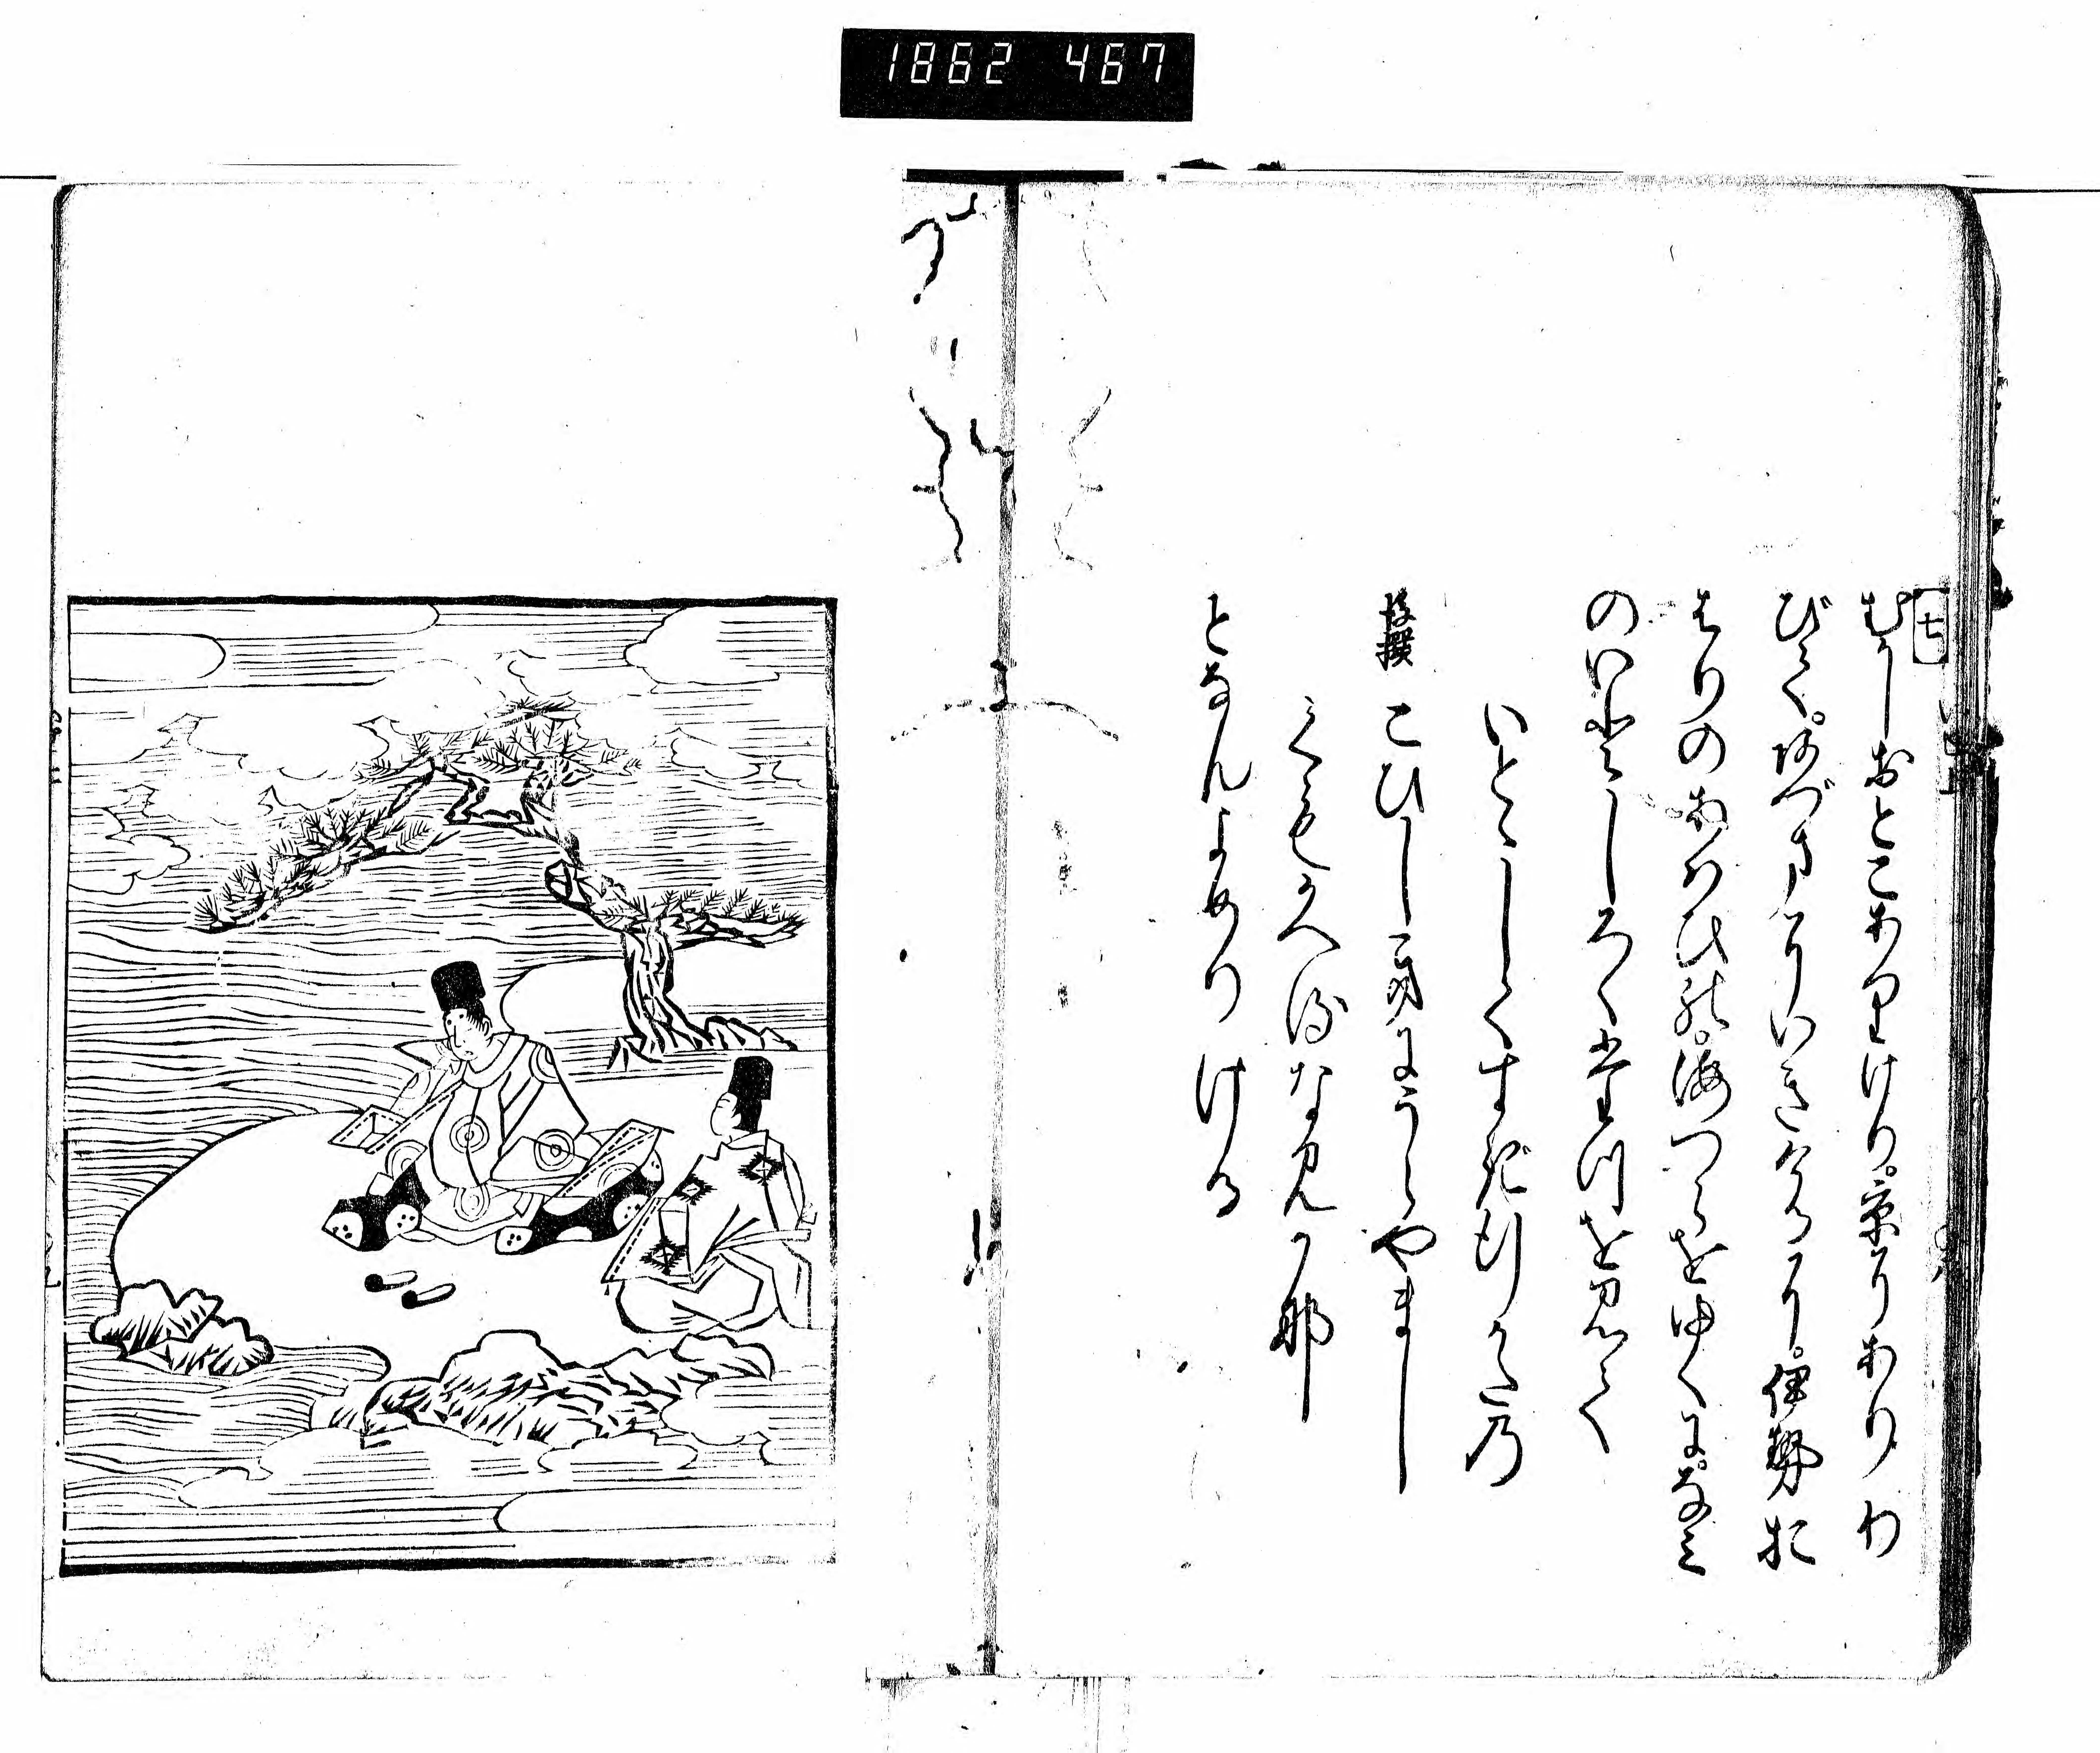 1862 467
七
むかしおとこありけり。京にありわ
びて。あづまにいきけるに。伊勢お
はりのあはひの。海つらをゆくに。なみ
のいとしろくたつを見て
いとゝしくすぎ行かたの
後撰 こひしきにうらやまし
くもかへるなみかな
となんよめりける